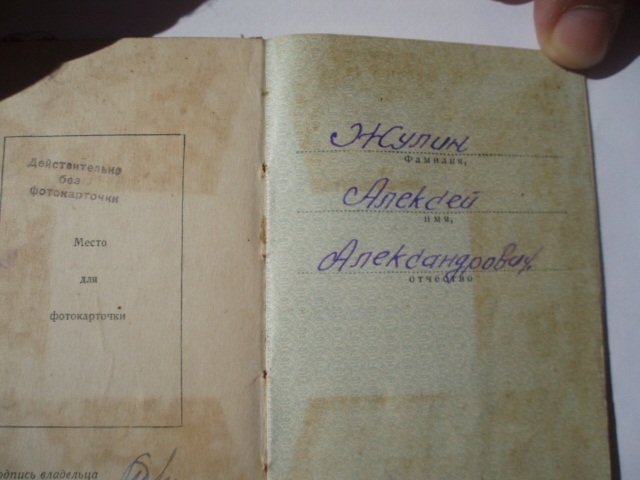 Действительно
без
фотокарточки
Место
для
фотокарточки
подпись владельца
Жулин
Фамилия,
Алексей
имя,
Александрович
отчество